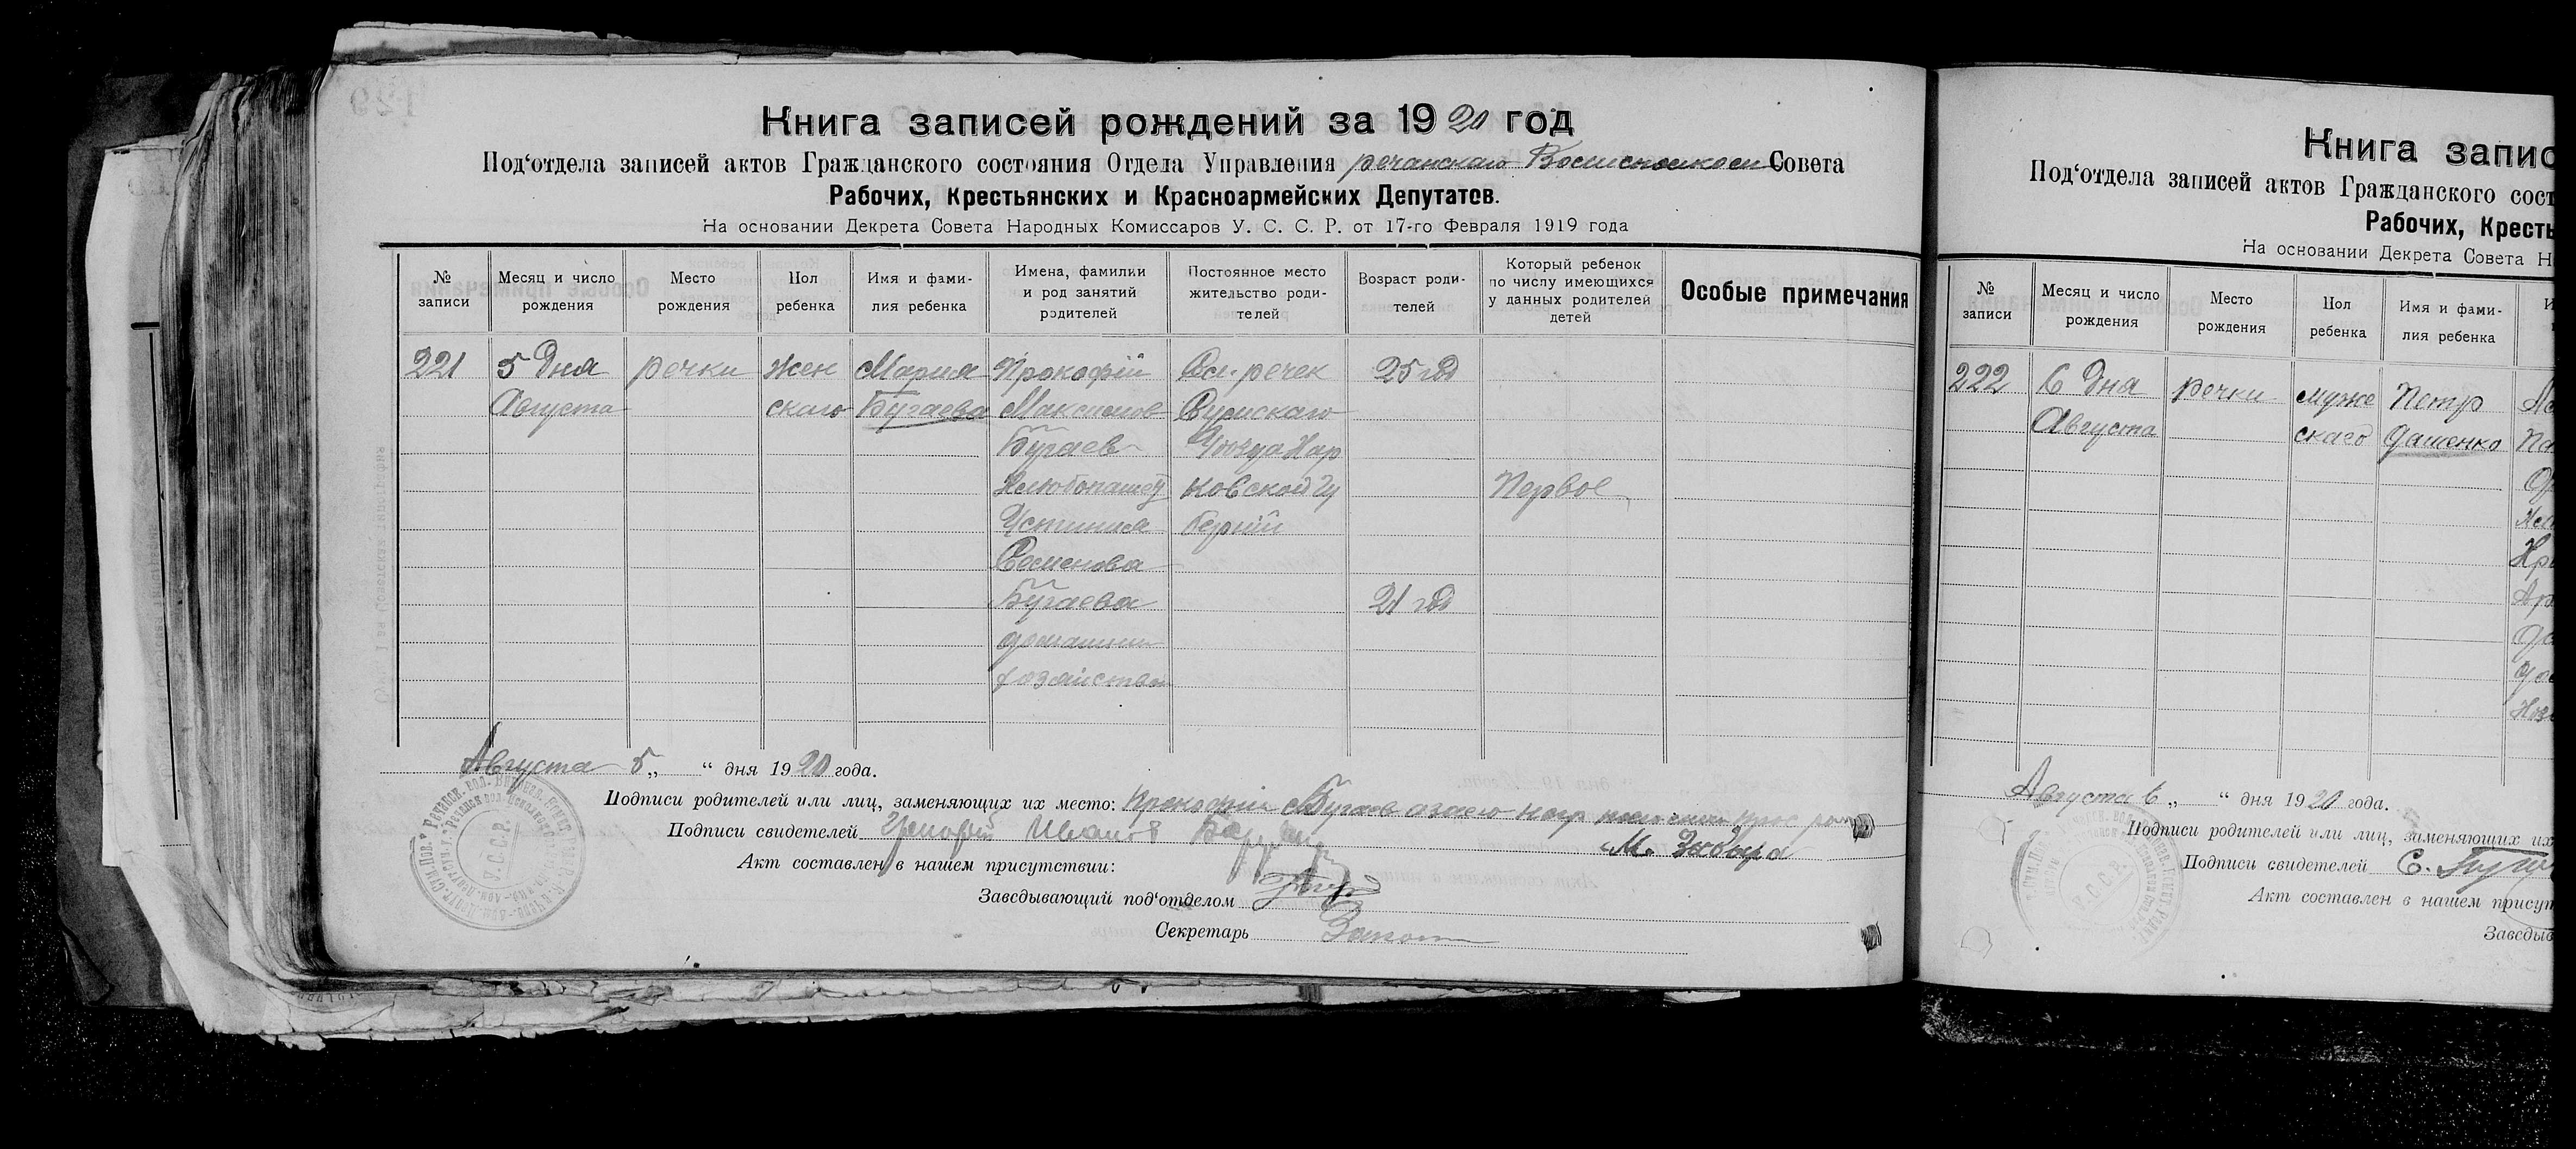 Книга записей рождений за 1920 год
Под‘отдела записей актов Гражданского состояния Отдела Управления речанскаго Совета
Рабочих, Крестьянских и Красноармейских Депутатов.
На основании Декрета Совета Народных Комиссаров У. С. С. Р. от 17-го Февраля 1919 года
№ записи
Месяц и число рождения
Место рождения
Пол ребенка
Имя и фами-
лия ребенка
Имена, фамилии
и род занятий
родителей
Постоянное место
жительство роди-
телей
Возраст роди-
телей
Который ребенок
по числу имеющихся
у данных родителей
детей
Особые примечания
221
5 дня
Августа
речки
жен
скаго
Мария
Бугаева
Прокофій
Максимов
Бугаев
Устиния
Семенова
Бугаева
домашнем
Сел. речек
Сумскаго
Уюзда Хар
ковской гу
берній
25 год
21 год
Первое
Августа 5 „ “ дня 1920 года.
Подписи родителей или лиц, заменяющих их место: Прокофій Бугаев
Подписи свидетелей Григорій Иванов
Акт составлен в нашем присутствии:
Заведывающий под‘отделом
Секретарь
У.С.С.Р.
Книга запис
Под‘отдела записей актов Гражданского сост
Рабочих, Кресть
На основании Декрета Совета Н
№ записи
Месяц и число
рождения
Место
рождения
Пол
ребенка
Имя и фами-
лия ребенка
222
6 дня
Августа
речки
муже
скаго
Петр
Дашенко
Августа 6 „ “ дня 1920 года.
Подписи родителей или лиц, заменяющих их
Подписи свидетелей С.
Акт составлен в нашем присут
Заведыв
У.С.С.Р.